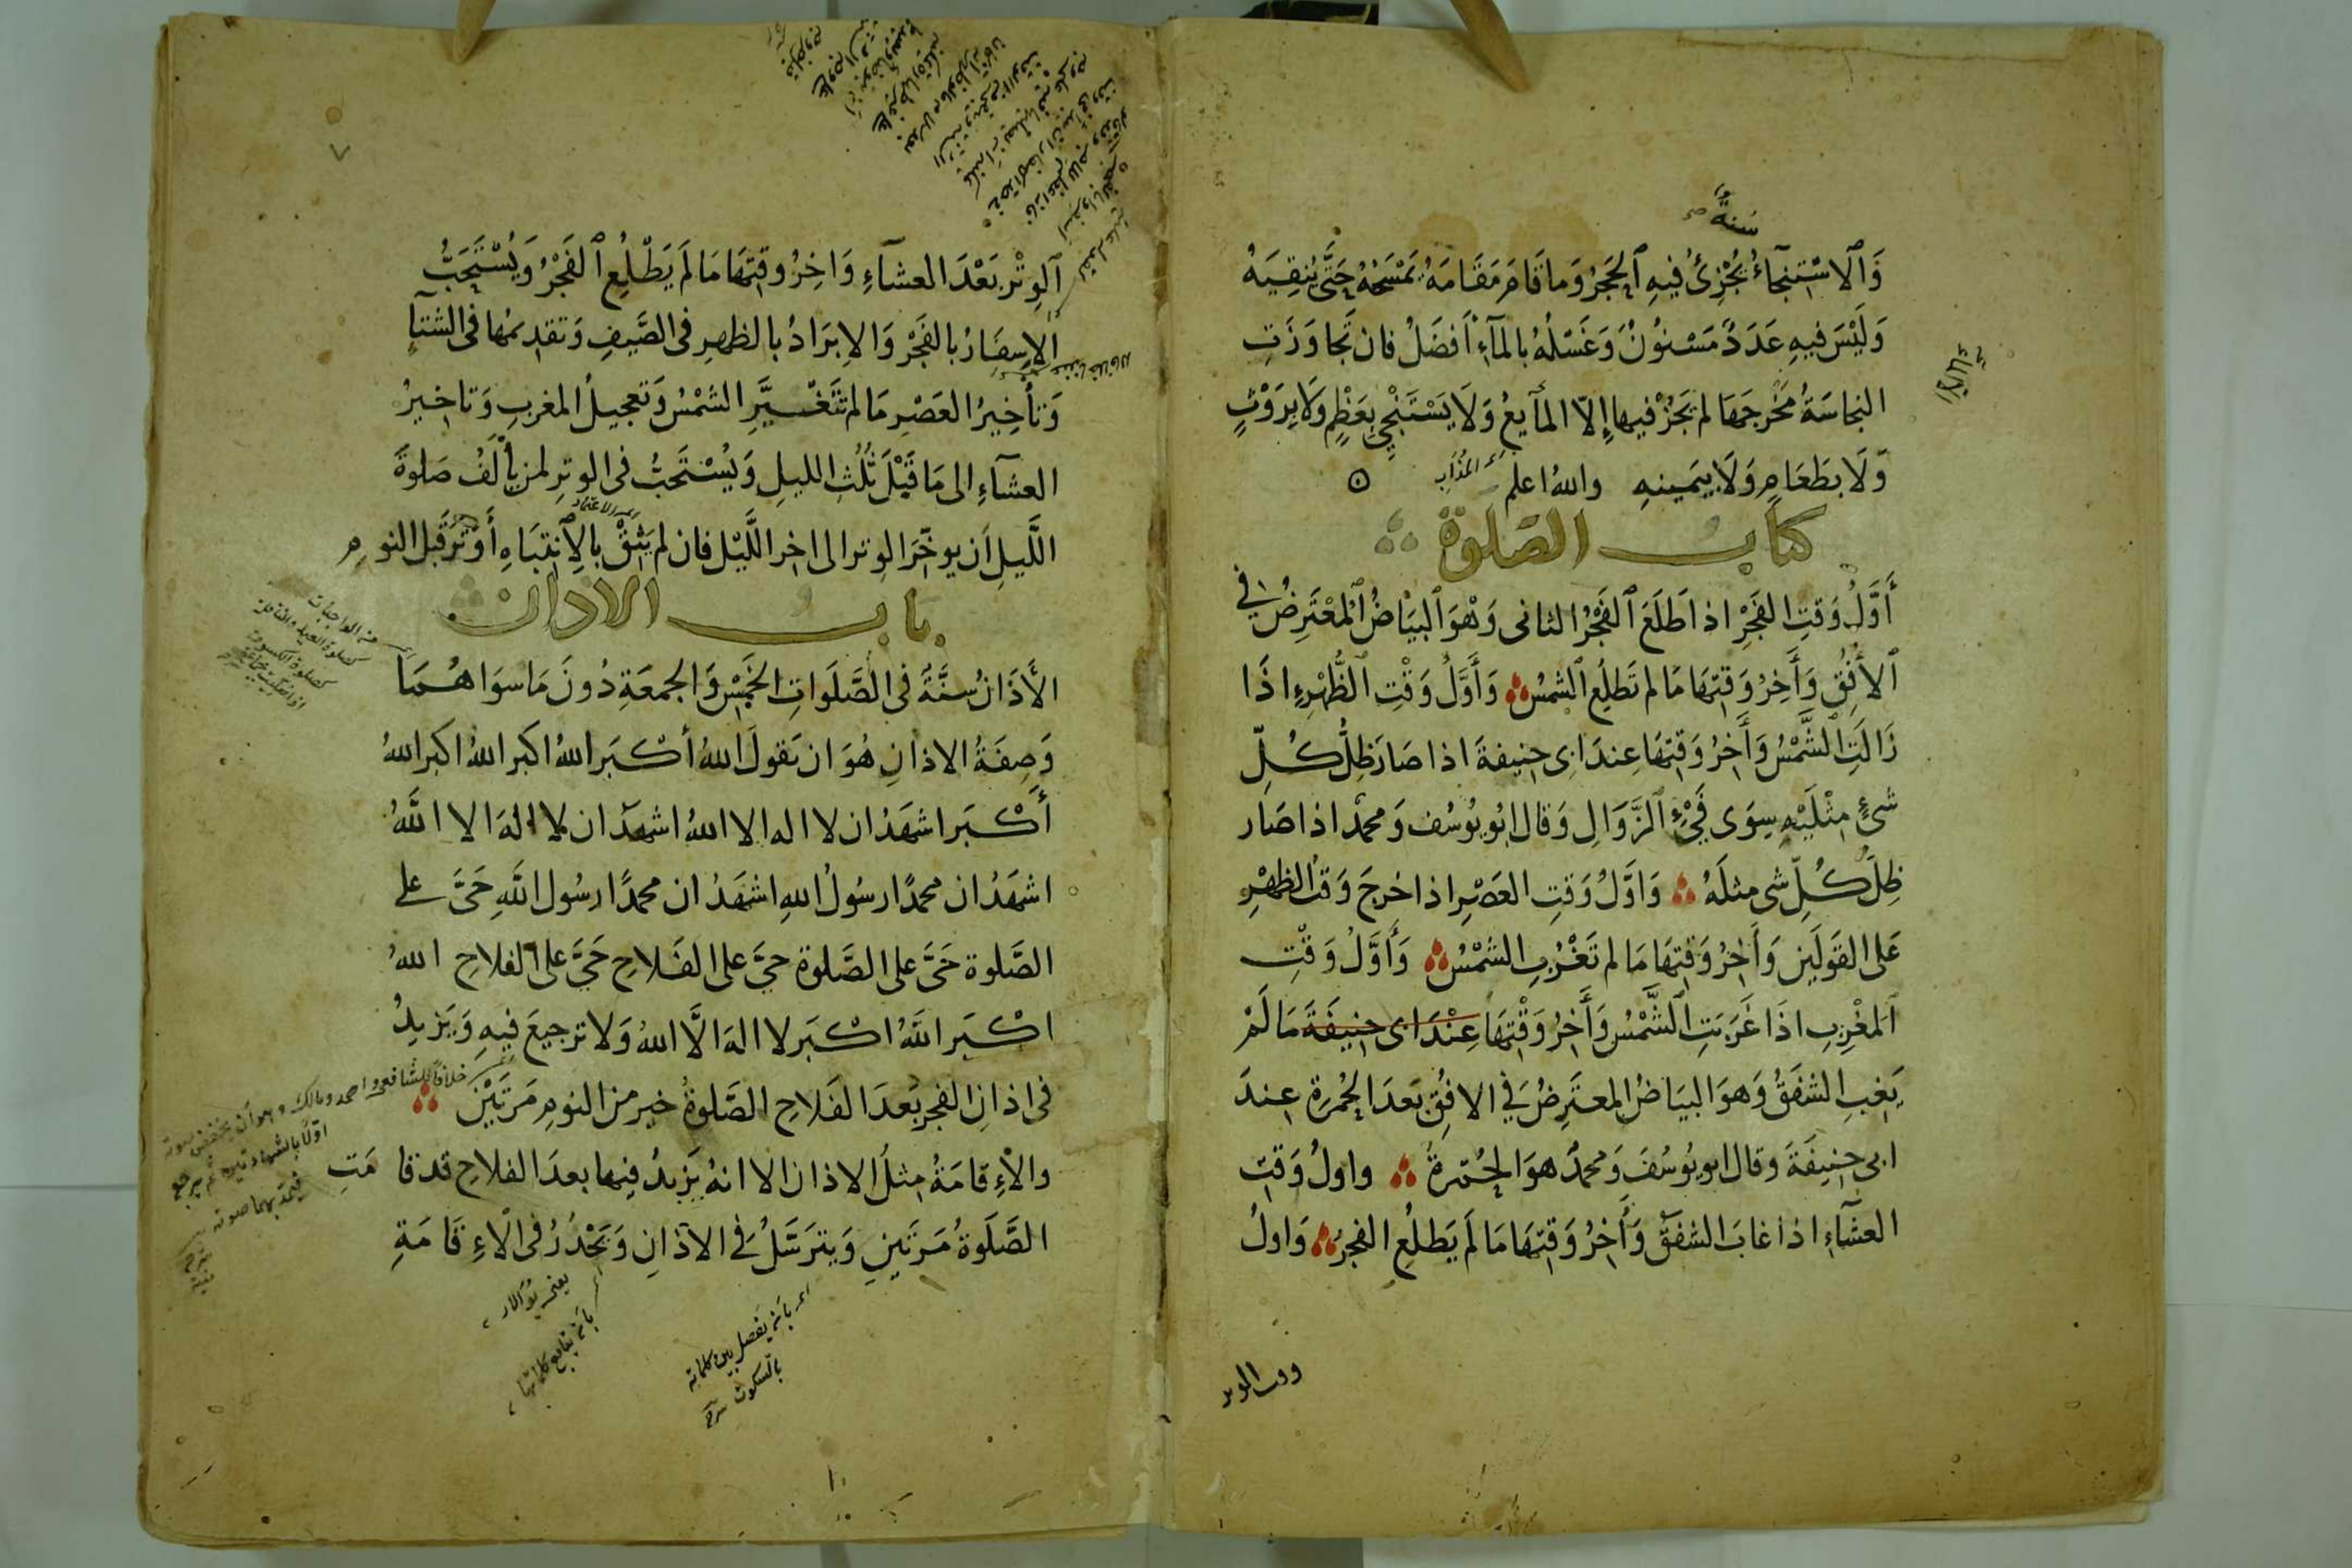 سنة صح
وَٱلاسْتِنجآءُ يُجْزِئُ فيهِ ٱلحَجَرُ وَما قَامَ مَقَامَهُ يَمْسَحُهُ حَتَّى يُنقِيَهُ
وَلَيْسَ فيهِ عَدَدٌ مَسْنوُنٌ وَغَسْلُهُ بالمآءِ أَفضَلُ فان تَجَاوَزَتِ
النجاسَةُ مَخْرجَهَا لم يَجُزْ فيها إِلّا المآيعُ وَلَا يَسْتَنْجِي بِعَظْمٍ وَلَا بِرَوْثٍ
وَلَا بطَعَامٍ وَلَا بيَمينهِ واللهُ اعلم
كتابُ الصّلوة
أَوَّلُ وَقتِ الفَجْرِ اذا طَلَعَ ٱلفَجْرُ الثانى وَهْوَ ٱلبَيَاضُ ٱلمْعْتَرِضُ في
ٱلأُفُقِ وَأَخِرُ وَقتِهَا مَا لم تَطلُعِ ٱلشمسُ وَأَوَّلُ وَقْتِ ٱلظُّهْرِ اذَا
زَالَتِ الشَّمْسُ وَأَخِرُ وَقتِهَا عِندَ ابى حنيفةَ اذا صَارَ ظِلُّ كُلِّ
شئٍ مِثْلَيْهِ سِوَى فَيْءِ ٱلزَّوَالِ وَقال ابُو يُوسُف وَمحمدٌ اذا صَار
ظِلُّ كُلِّ شى مثلَهُ وَاوَّلُ وَقتِ العَصْرِ اذا خرجَ وَقتُ الظهْرِ
عَلى القَولَينِ وَأَخِرُ وَقتِهَا مَا لم تَغْرُبِ الشمْسُ وَأَوَّلُ وَقْتِ
ٱلمغْرِبِ اذَا غَرَبَتِ ٱلشَّمْسُ وَأَخِرُ وَقْتِهَا عِنْدَ ابى حنيفَةَ مَا لَمْ
يَغِبِ الشفَقُ وَهوَ البيَاضُ المعتَرِضُ فِي الافُقِ بَعدَ الحُمرَةِ عِندَ
ابى حنيفَةَ وقال ابو يُوسُفَ وَمحمدٌ هوَ الحُمْرةُ واولُ وَقتِ
العشآءِ اذا غابَ الشفَقُ وَأخِرُ وَقتِهَا مَا لَم يَطلُعِ الفجرُ وَاولُ
وقت الوتر
ٱلوِتْرِ بَعْدَ العشآءِ وَاخِرُ وقتِهَا مَا لَم يَطْلُعِ ٱلفَجْرُ وَيُسْتَحَبُّ
الإسِفَارُ بالفَجْرِ وَالإبرَادُ بالظهرِ فى الصَّيفِ وَتقديمُها فى الشتآءِ
وَتأخِيرُ العَصْرِ مَا لم تتَغَيَّرِ الشمْسُ وَتعجيلُ المغربِ وَتاخيرُ
العشآءِ الى مَا قَبْلَ ثُلُثِ الليلِ وَيُسْتَحَبُّ فى الوترِ لمن يأْلَفُ صَلوةَ
اللَّيلِ أَن يوخّرَ الوترَ الى اخر اللَّيْل فان لم يَثِقْ بالِانتِبَاهِ أَوْتَرَ قَبل النومِ
بابُ الاذان
الأَذَانُ سُنَّةٌ فى الصَّلَواتِ الخَمْسِ وَالجمعَةِ دُونَ مَا سوَاهُمَا
وَصِفَةُ الاذانِ هُوَ ان يَقولَ اللهُ أكْبَر اللهُ اكبر اللهُ اكبر اللهُ
أَكْبَر اشهَدُ ان لا اله الا اللهُ اشهدُ ان لا الهَ الا اللَّهُ
اشهَدُ ان محمدًا رسُولُ اللهِ اشهَدُ ان محمدًا رسُول اللَّهِ حَيَّ على
الصَّلوة حَيَّ على الصَّلوة حيَّ على الفَلاحِ حَيَّ على الفلاحِ اللهُ
اكْبَر اللَّهُ اكْبَر لا الهَ الَّا اللهُ وَلا ترجيعَ فيهِ وَيَزيدُ
فى اذانِ الفجرِ بَعدَ الفَلاحِ الصَّلوةُ خير من النومِ مَرتَيْنِ
والأِقامَةُ مِثلُ الاذان الا انهُ يَزِيدُ فيها بعدَ الفلاحِ قد قامَتِ
الصَّلَوةُ مَرتَينِ وَيترَسَّلُ فِي الاذانِ وَيَحْدُرُ فى الاِقَامَةِ
من الواجبات
كصلوة العيد والنافلة
كصلوة الكسوف
خلافا للشافعى واحمد ومالك وهو أن يخفض صوته
اولا بالشهادتين ثم يرجع
فيمد بهما صوته
اى بان يفصل بين كلماته
بالسكوت
بان يتابع كلماتها